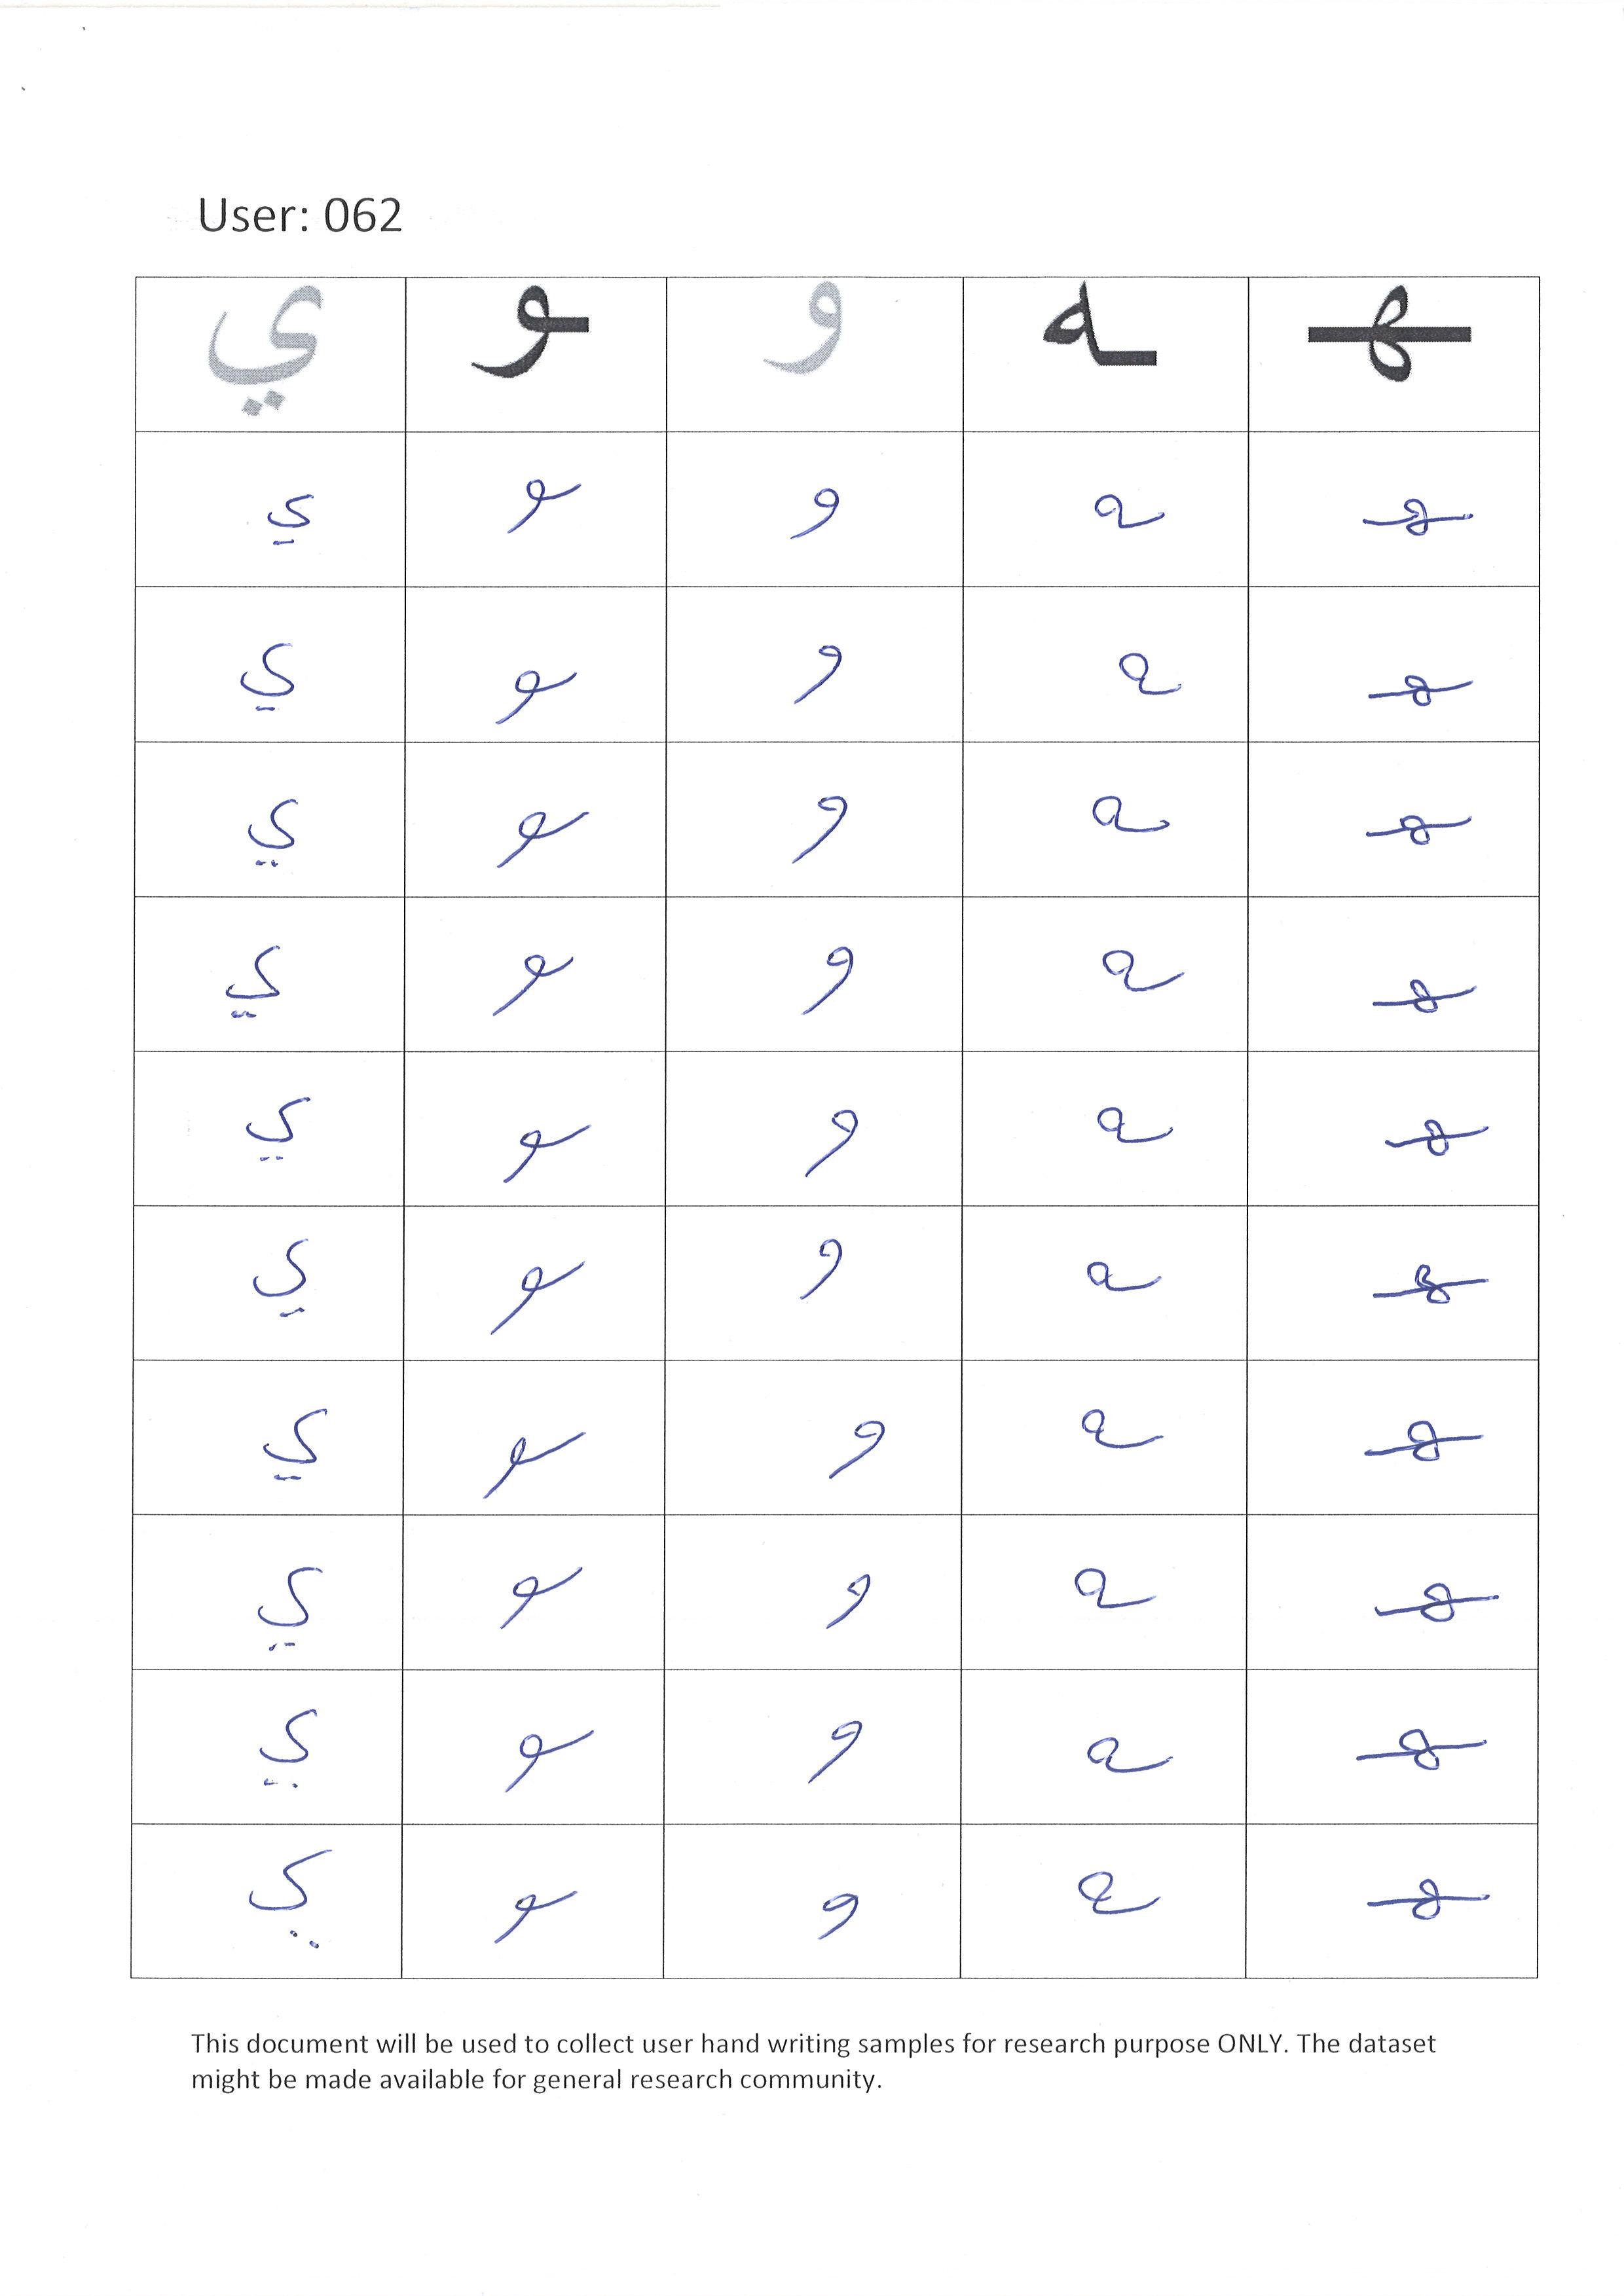 User: 062
ي ـو و ـه ـهـ
ي ـو و ـه ـهـ
ي ـو و ـه ـهـ
ي ـو و ـه ـهـ
ي ـو و ـه ـهـ
ي ـو و ـه ـهـ
ي ـو و ـه ـهـ
ي ـو و ـه ـهـ
ي ـو و ـه ـهـ
ي ـو و ـه ـهـ
ي ـو و ـه ـهـ
This document will be used to collect user hand writing samples for research purpose ONLY. The dataset
might be made available for general research community.